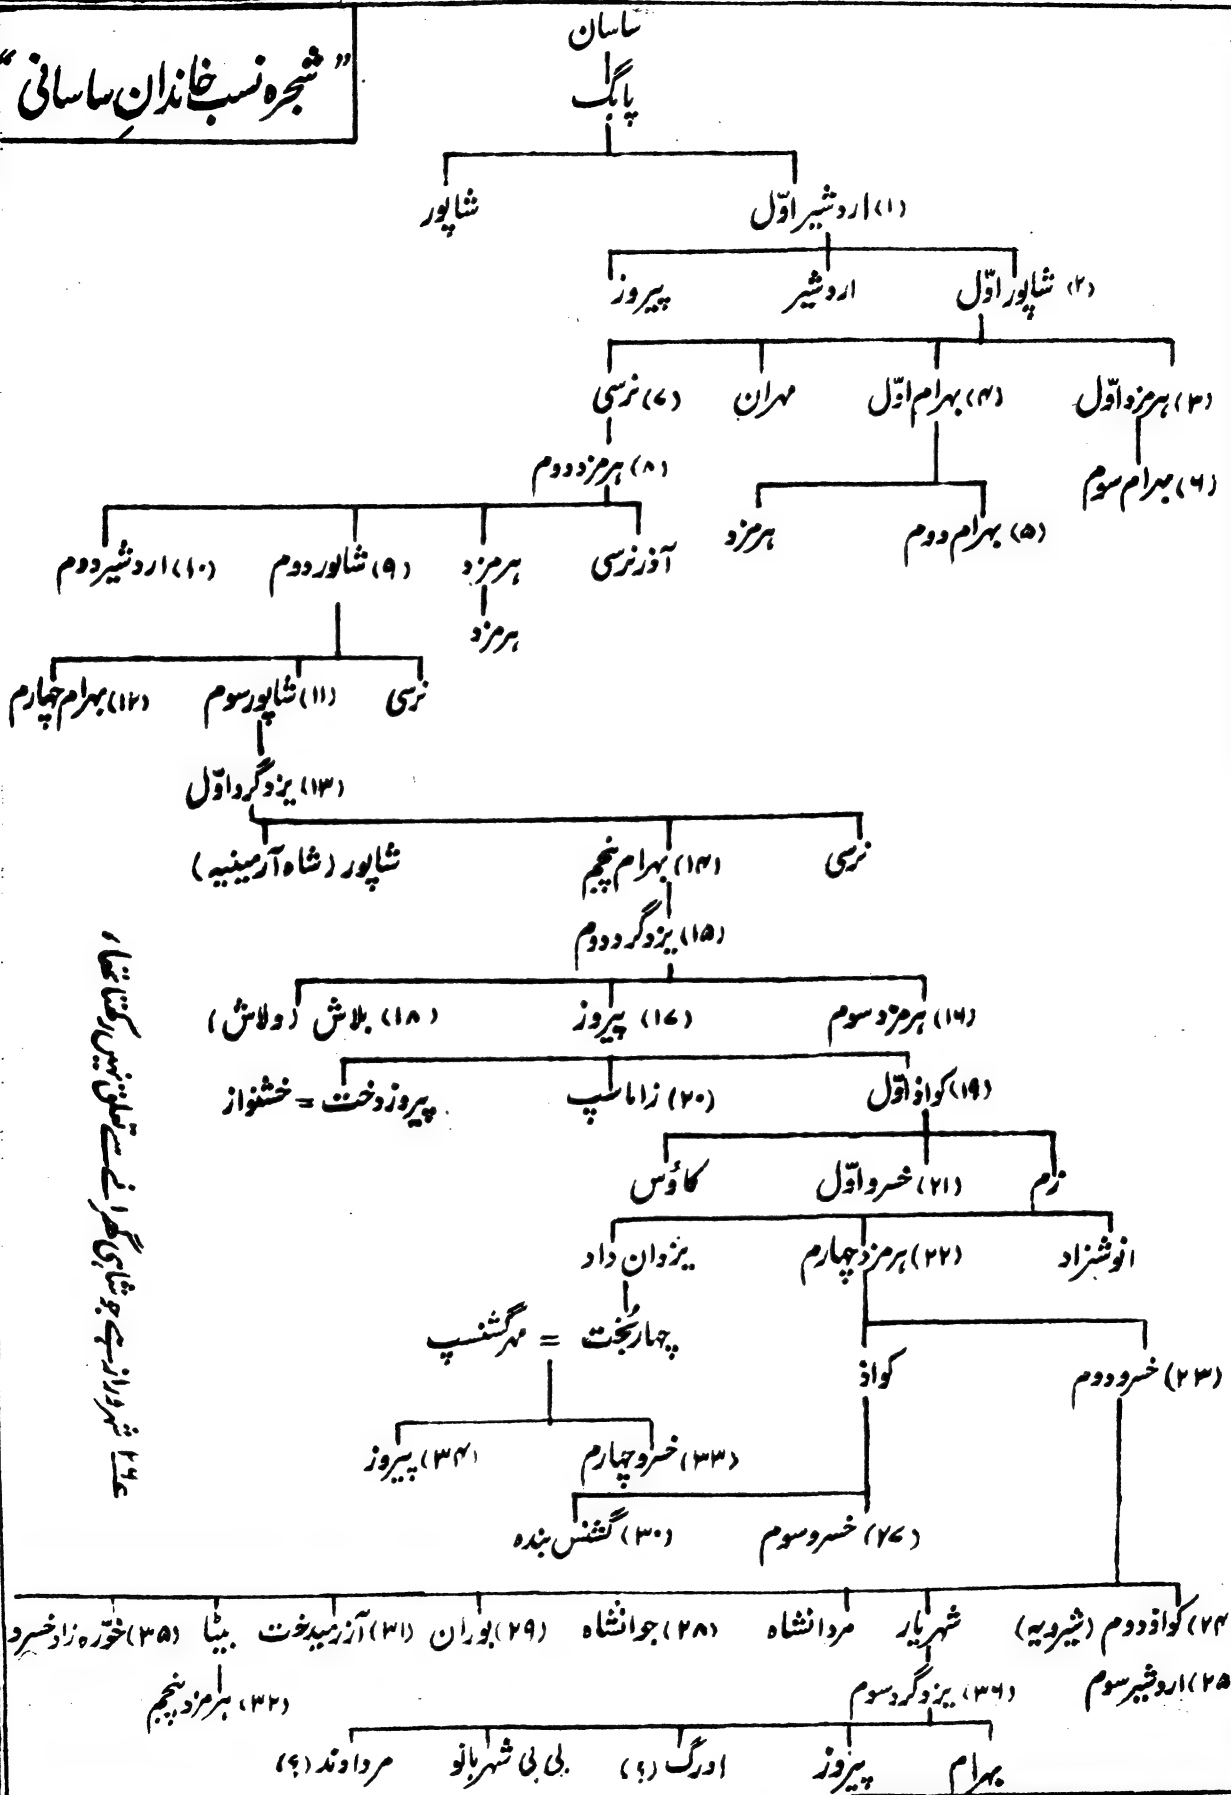 ساسان
"شجرہ نسب خاندانِ ساسانی"
پابگ
شاپور
(۱) اردشیر اوّل
(۲) شاپور اوّل
اردشیر
پیروز
(۳) ہرمزد اوّل
(۴) بہرام اوّل
مہران
(۷) نرسی
(۸) ہرمزد دوم
(۶) بہرام سوم
(۵) بہرام دوم
ہرمزد
آذر نرسی
ہرمزد
(۹) شاپور دوم
(۱۰) اردشیر دوم
ہرمزد
نرسی
(۱۱) شاپور سوم
(۱۲) بہرام چہارم
(۱۳) یزدگرد اوّل
نرسی
(۱۴) بہرام پنجم
شاپور (شاہ آرمینیہ)
(۱۵) یزدگرد دوم
(۱۶) ہرمزد سوم
(۱۷) پیروز
(۱۸) بلاش (ولاش)
(۱۹) کواذ اوّل
(۲۰) زاماسپ
پیروزدخت = خشنواز
زم
(۲۱) خسرو اوّل
کاؤس
انوشزاد
(۲۲) ہرمزد چہارم
یزدان داد
چہاربُخت = مہرگشنسپ
(۲۳) خسرو دوم
کواذ
(۳۳) خسرو چہارم
(۳۴) پیروز
(۲۷) خسرو سوم
(۳۰) گشنس بندہ
(۲۴) کواذ دوم (شیرویہ)
شہریار
مردانشاہ
(۲۸) جوانشاہ
(۲۹) بوران
(۳۱) آزرمیدخت
بیٹا
(۳۵) خوّرہ زاد خسرو
(۲۵) اردشیر سوم
(۳۶) یزدگرد سوم
(۳۲) ہرمزد پنجم
بہرام
پیروز
اورگ (؟)
بی بی شہربانو
مرداوند (؟)
۲۶ شہرورازہے جو شاہی گھرانے سے تعلق نہیں رکھتا تھا۔